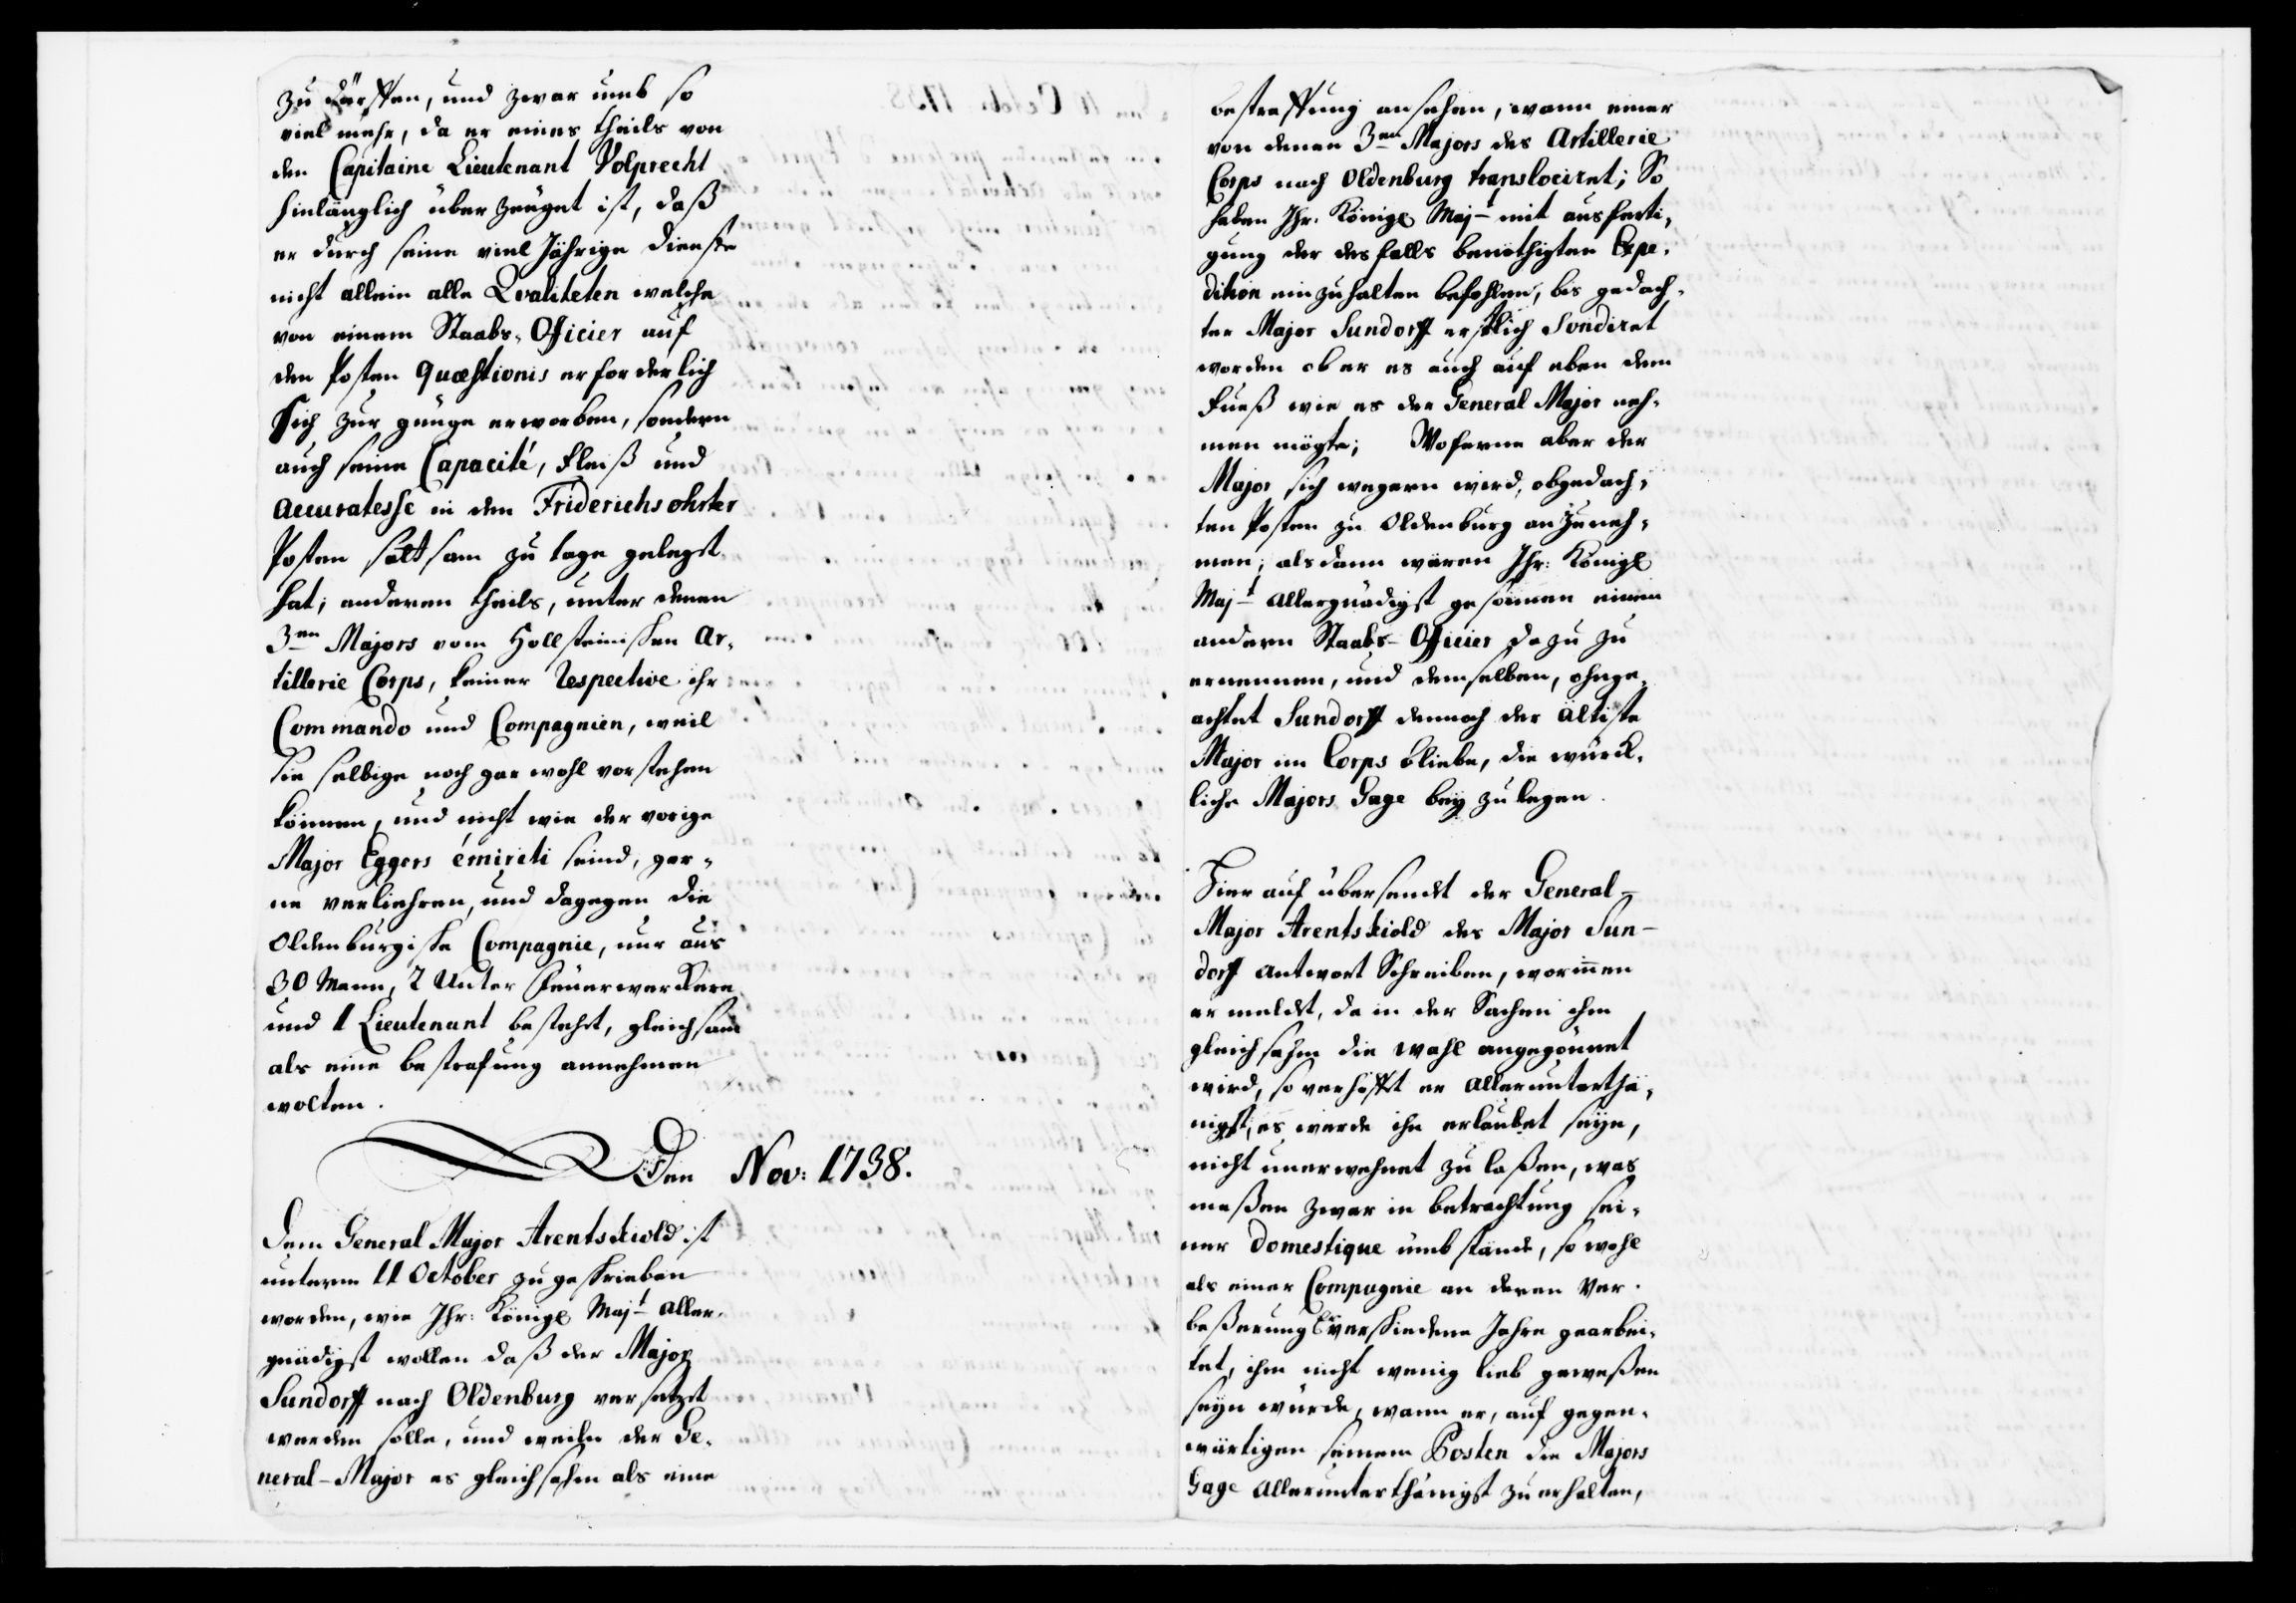 zu dürffen, und zwar umb so
viel mehr, da er eines theils von
den Capitaine Lieutenant Volprecht
hinlänglich über zeuget ist, daß
er durch seine viel Jährige dienste
nicht allein alle Qvaliteten welche
von einem Staabs-Officier auf
den Posten quæstionis erforderlich
Sich zur gnüge erworben, sondern
auch seine Capacité, fleiß und
accuratesse in den Friderichsohrter
Posten sattsam zu tage gelegt
hat; anderen theils, unter denen
3en Majors vom Hollsteinischen Ar-
tillerie Corps, keiner respective ihr
Commando und Compagnien, weil
Sie selbige noch gar wohl vorstehen
können, und nicht wie der vorige
Major Eggers émiriti seind, ger-
ne verliehren, und dagegen die
Oldenburgische Compagnie, nur aus
30 Mann, 2 Unter feuerwerckern
und 1 Lieutenant bestehet, gleichsam
als eine bestrafung annehmen
wolten.
Den Nov: 1738.
Dem General Major Arentskiold ist
unterm 11 October zugeschrieben
worden, wie Ihr: Königl Majt aller-
gnädigst wollen daß der Major
Sundorff nach Oldenburg versetzet
werden solle, und weiln der Ge-
neral-Major es gleichsahm als eine
bestraffung ansehen, wann einer
von denen 3en Majors des Artillerie
Corps nach Oldenburg transloceret; So
haben Ihr. Königl Majt mit ausferti-
gung der desfalls benöthigten Expe-
dition einzuhalten befohlen, bis gedach-
ter Major Sundorff erstlich Sondiret
worden ob er es auch auf eben dem
fueß wie es der General Major neh-
men mögte; Woferne aber der
Major sich wegern wird, obgedach-
ten Posten zu Oldenburg anzuneh-
men; alsdann wären Ihr: Königl
Majt allergnädigst gesonnen einen
andern Staabs-Officier dazu zu
ernennen, und demselben, ohnge-
achtet Sundorff dennoch der ältiste
Major im Corps bliebe, die würck-
liche Majors Gage bey zulegen.
Hierauf übersendet der General-
Major Arentskiold des Major Sun-
dorff antwort Schreiben, worinnen
er meldet, da in der Sachen ihm
gleichsahm die Wahl angegönnet
wird, so verhoffet er allerunterthä-
nigst, es werde ihn erlaubet seyn,
nicht unerwehnet zu laßen, was
maßen zwar in betrachtung sei-
ner domestique umbstände, so wohl
als einer Compagnie an deren Ver-
beßerung Er verschiedene Jahre gearbei-
tet, ihm nicht wenig lieb geweßen
seyn würde, wann er, auf gegen-
wärtigen seinem Posten die Majors
Gage allerunterthänigst zu erhalten,